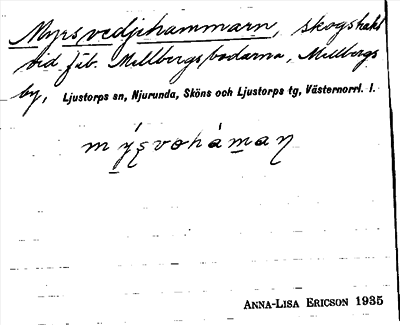 Myrsvedjehammarn, skogskakt
vid fäb. Millbergsbodarna, Millbergs
by, Ljustorps sn, Njurunda, Sköns och Ljustorps tg, Västernorrl. l.
ANNA-LISA ERICSON 1935